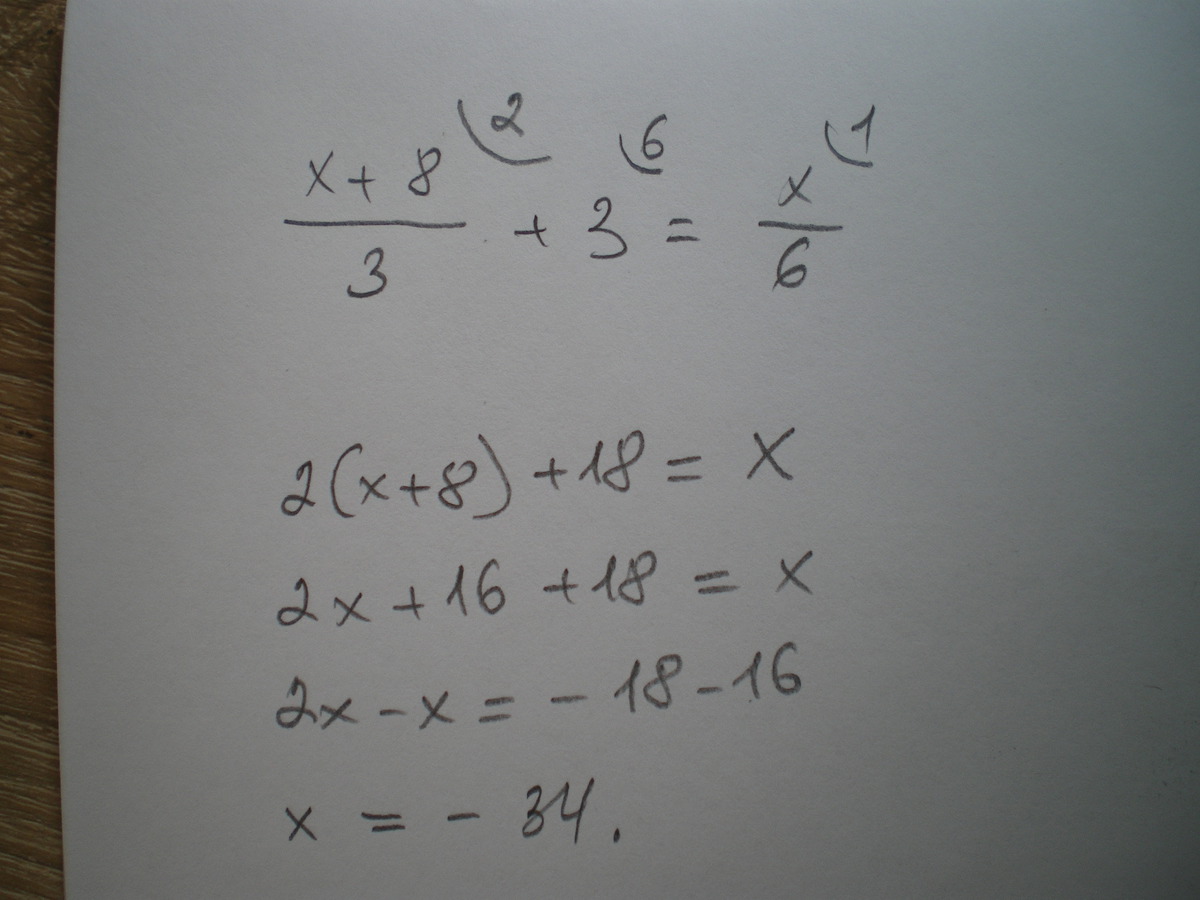 x + 8 (2   (6   x (1
――― + 3 = ―
3   6
2(x+8) +18 = x
2x + 16 +18 = x
2x - x = - 18 - 16
x = - 34.